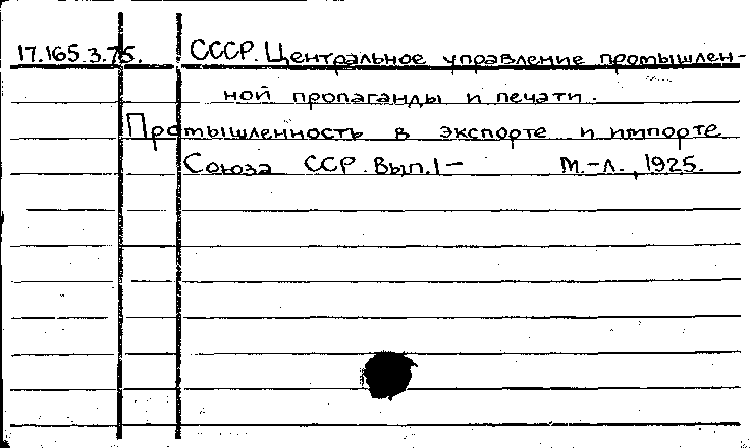 17.165.3.75. СССР. Центральное управление промышлен-
ной пропаганды и печати.
Промышленность в экспорте и импорте
Союза ССР. Вып.1- М.-Л., 1925.